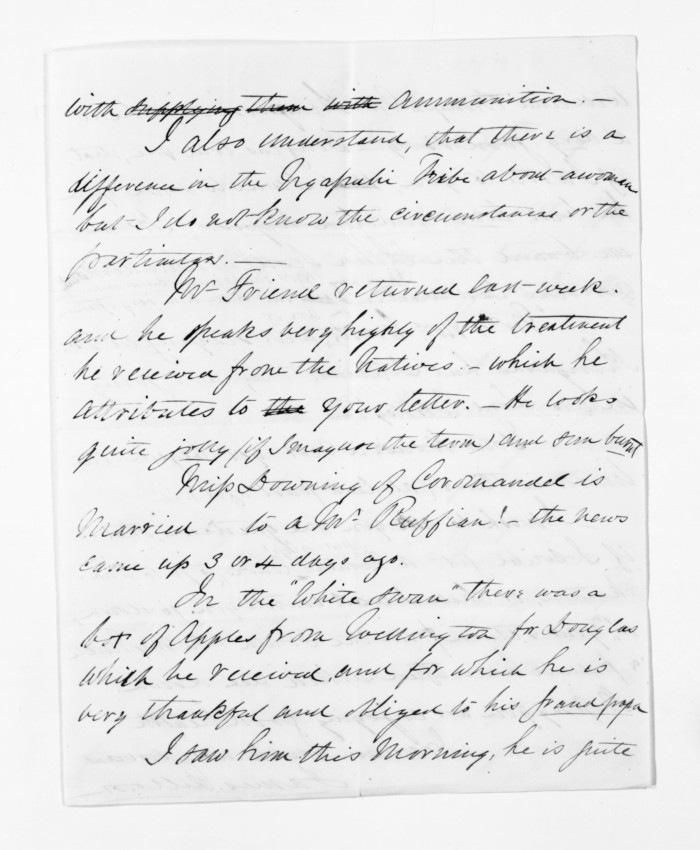 with supplying them with ammunition. —
I also understand, that there is a
difference in the Ngapuhi Tribe about a woman
but I do not know the circumstances or the
particulars. —
Mr Friend returned last week.
and he speaks very highly of the treatment
he received from the Natives. — which he
attributes to the your letter. — He looks
quite jolly (if I may use the term) and sun burnt
Miss Downing of Coromandel is
Married to a Mr Ruffian! — the news
came up 3 or 4 days ago.
In the "White Swan" there was a
box of Apples from Wellington for Douglas
which he received, and for which he is
very thankful and obliged to his grand papa
I saw him this Morning, he is quite